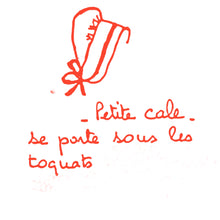 - Petite cale -
se porte sous les
toquats